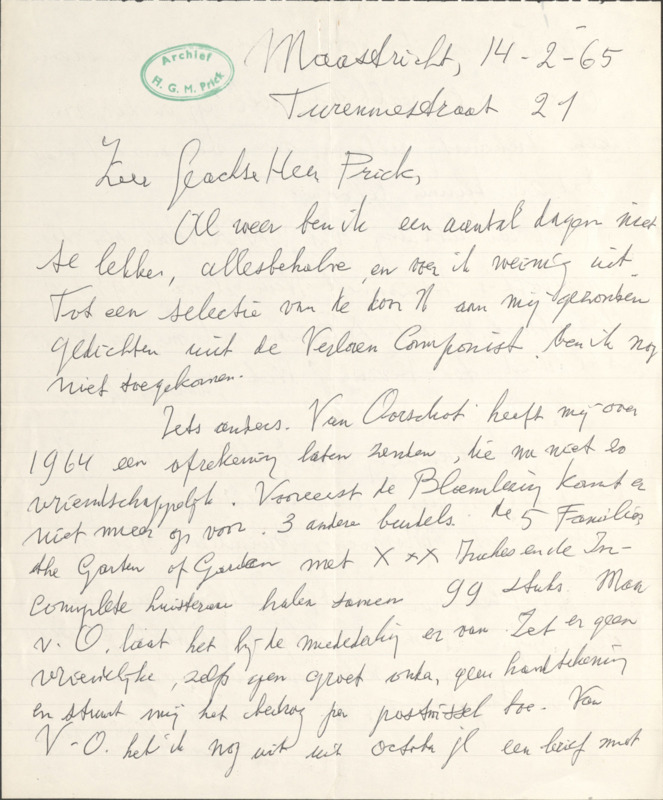 Archief
H. G. M. Prick
Maastricht, 14-2-65
Turennestraat 21
Zeer Geachte Heer Prick,
Al weer ben ik een aantal dagen niet
te lekker, allesbehalve, en voer ik weinig uit.
Tot een selectie van de door U aan mij gezonden
gedichten uit de Verloren Componist, ben ik nog
niet toegekomen.
Iets anders. Van Oorschot heeft mij over
1964 een afrekening laten zenden, die me niet zo
vriendschappelijk. Vooreerst de Bloemlezing komt er
niet meer op voor. 3 andere bundels. De 5 Families
the Garden of Gardan met X x X en de In-
complete halen samen 99 stuks. Maar
v. O. laat het bij de mededeling er van. Zet er geen
vriendelijke, zelfs geen groet onder, geen handtekening
en stuurt mij het bedrag per postwissel toe. Van
V-O. heb ik nog uit october jl een brief met